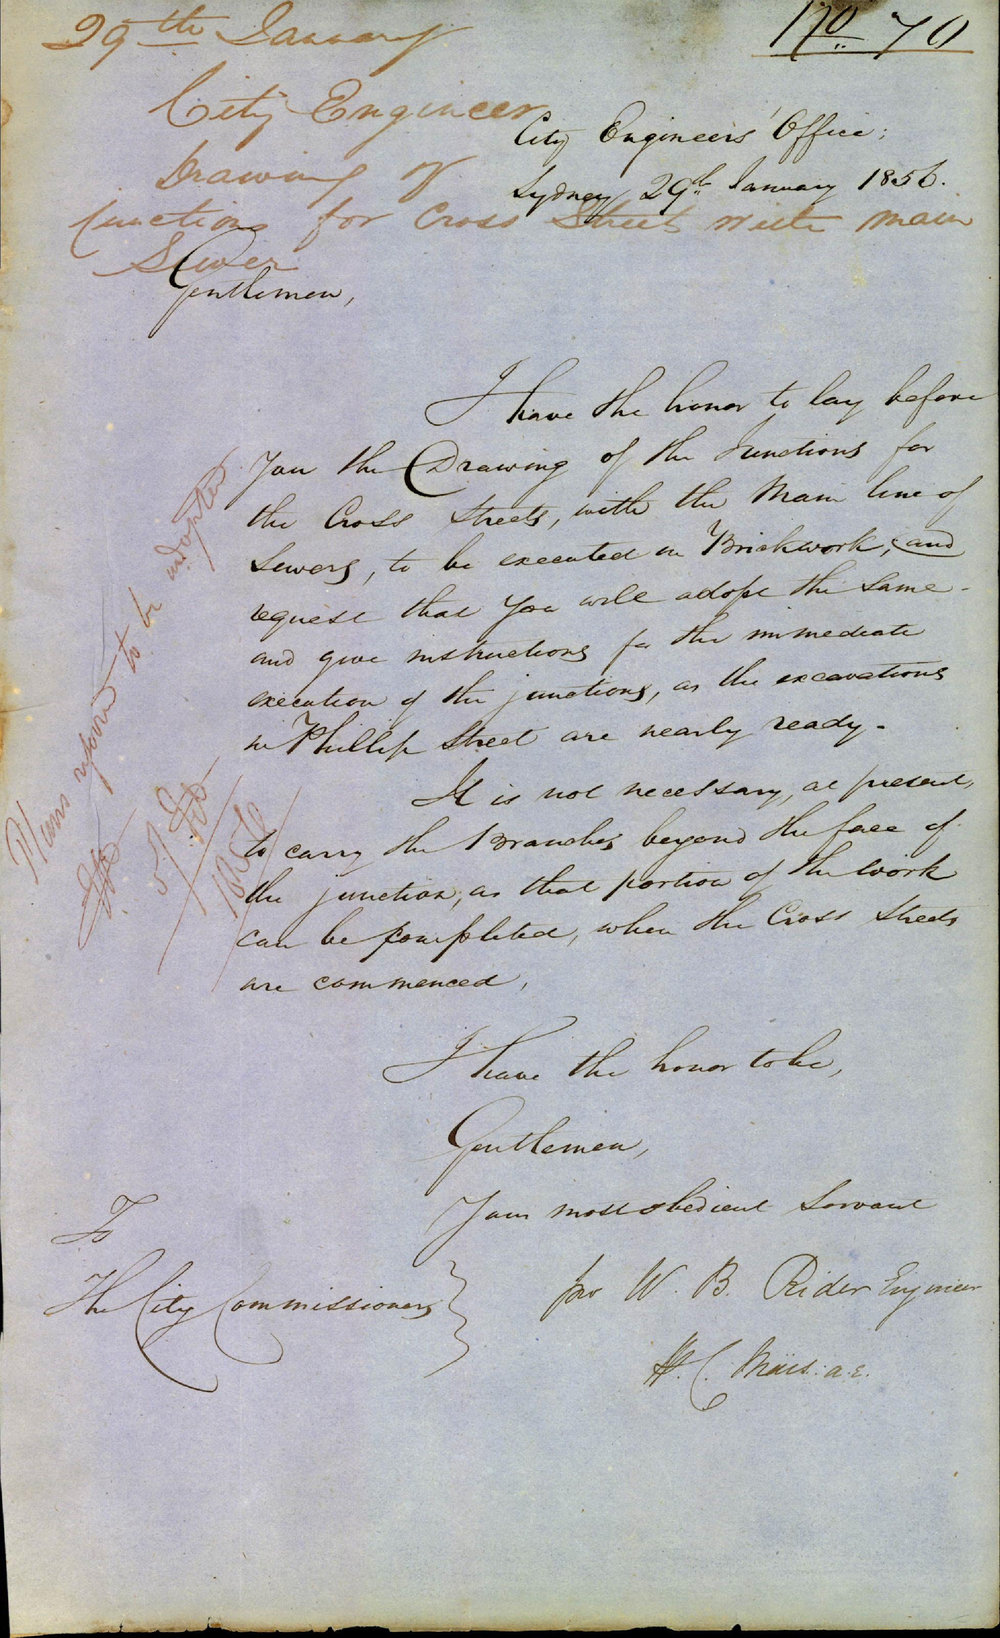 29th January
No 70
City Engineer
City Engineers' Office;
Drawing of
Sydney 29th January 1856.
Junctions for Cross Streets with Main
Sewer
Gentlemen,
I have the honor to lay before
You the Drawing of the Junctions for
the Cross Streets, with the Main line of
Sewers, to be executed in Brickwork, and
request that You will adopt the same -
and give instructions for the immediate
execution of the junctions, as the excavations
in Phillip Street are nearly ready -
It is not necessary, at present,
to carry the Branches beyond the face of
the junction, as that portion of the work
can be completed, when the Cross Streets
are commenced,
I have the honor to be,
Gentlemen,
Your most obedient Servant
pro W. B. Rider Engineer
H. C. Mais. a.e.
To
The City Commissioners
to be adopted